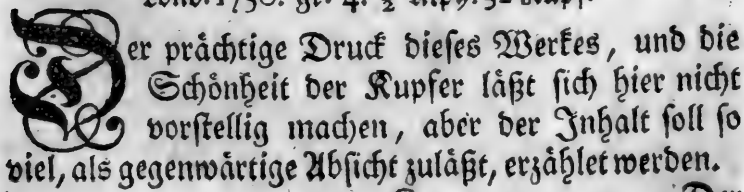 Der prächtige Druck dieses Werkes, und die
Schönheit der Kupfer läßt sich hier nicht
vorstellig machen, aber der Inhalt soll so
viel, als gegenwärtige Absicht zuläßt, erzählet werden.